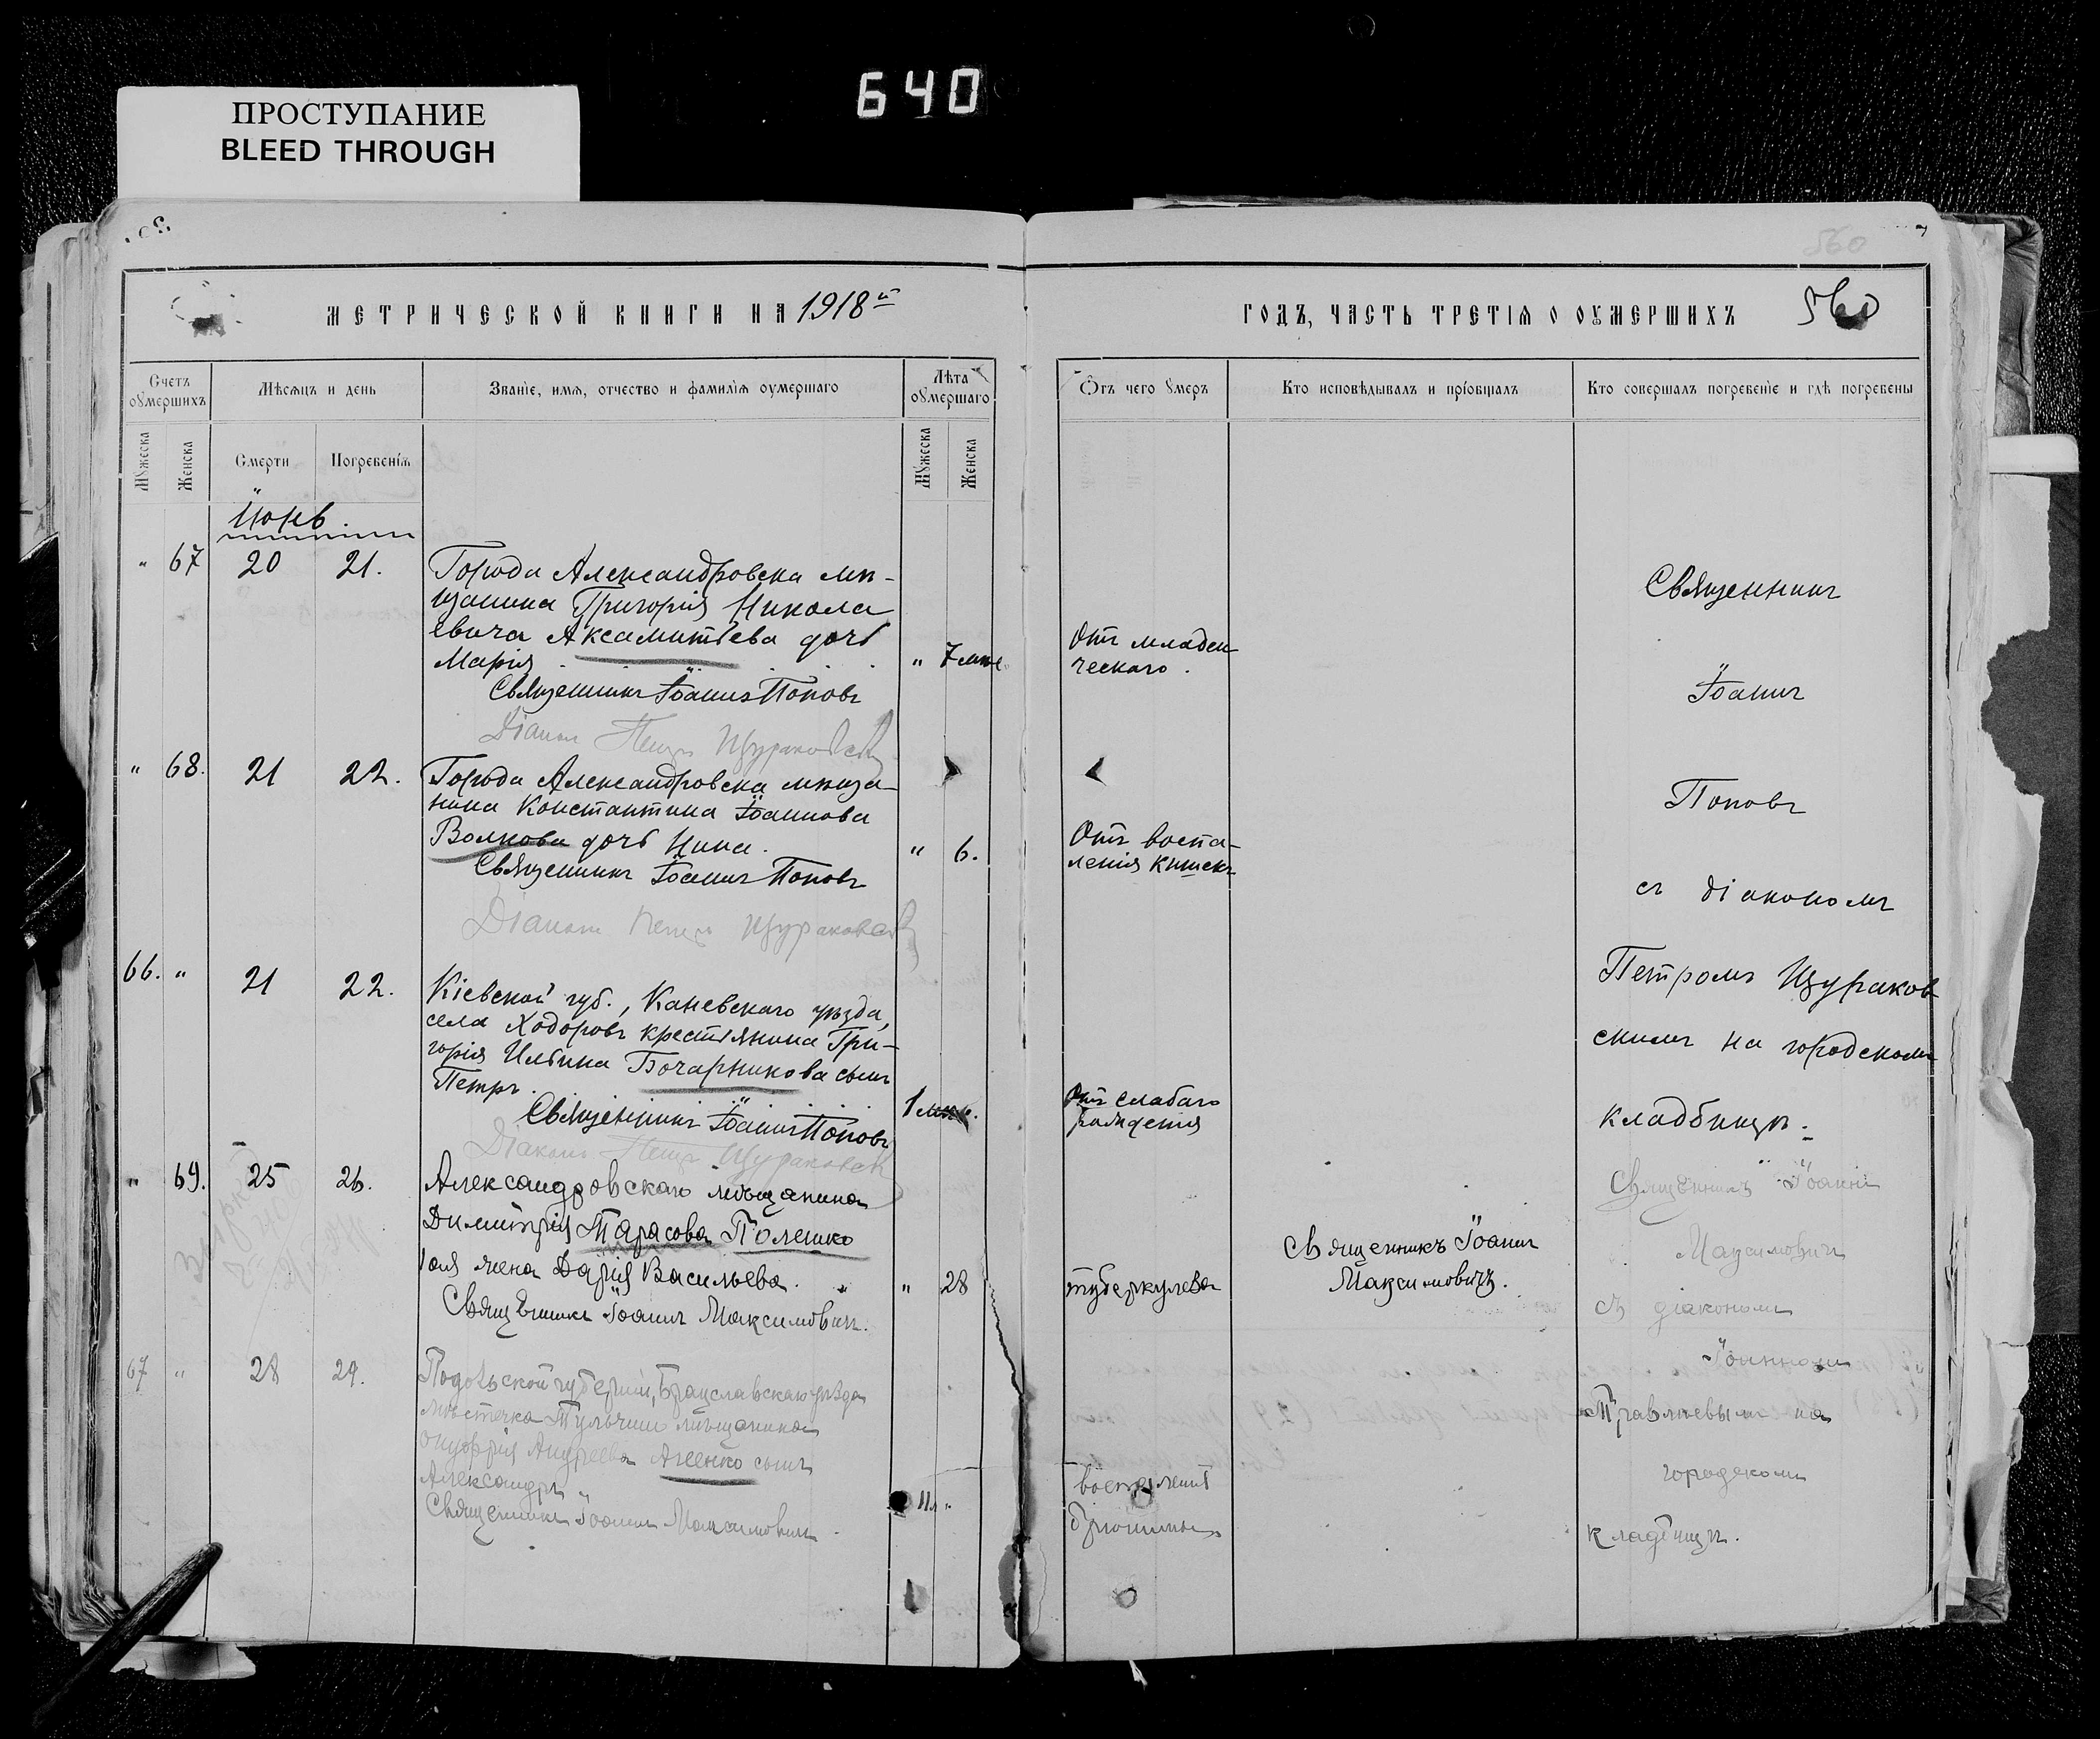 640
ПРОСТУПАНИЕ
BLEED THROUGH
560
МЕТРИЧЕСКОЙ КНИГИ НА 1918й
ГОДЪ, ЧАСТЬ ТРЕТІѦ О ОУМЕРШИХЪ
560
Счетъ оумершихъ
Мѣсѧцъ и день
Званіе, имѧ, отчество и фамиліѧ оумершаго
Лѣта оумершаго
Отъ чего умеръ
Кто исповѣдывалъ и пріобщалъ
Кто совершалъ погребеніе и гдѣ погребены
Мужеска
Женска
Смерти
Погребеніѧ
Мужеска
Женска
Іюнь.
" 67 20 21.
Города Александровска мѣ-
щанина Григорія Никола
евича Аксамитьева дочь
Марія.
" 7 мѣс.
Отъ младен
ческаго.
Священникъ Іоаннъ Поповъ
Діаконъ Петръ Щураковскій
" 68. 21 22.
Города Александровска мѣща-
нина Константина Іоаннова
Волкова дочь Нина.
" 6.
Отъ воспа-
ленія кишекъ
Священникъ Іоаннъ Поповъ
Діаконъ Петръ Щураковскій
66. " 21 22.
Кіевской губ., Каневскаго уѣзда,
села Ходоровъ крестьянина Гри-
горія Ильина Бочарникова сынъ
Петръ.
1 мѣс.
Отъ слабаго
рожденія
Священникъ Іоаннъ Поповъ
Діаконъ Петръ Щураковскій
Священникъ
Іоаннъ
Поповъ
съ діакономъ
Петромъ Щураков
скимъ на городскомъ
кладбищѣ.
" 69. 25 26.
Александровскаго мѣщанина
Димитрія Тарасова Полешко
жена Дарія Васильева.
" 28
туберкулеза
Священникъ Іоаннъ
Максимовичъ.
Священникъ Іоаннъ Максимовичъ.
67 " 28 29.
Подольской губерніи, Брацславскаго уѣзда
мѣстечка Тульчин мѣщанина
Онуфрія Андреева Агеенко сынъ
Александръ "
11
воспаленія
брюшины
Священникъ Іоаннъ Максимовичъ
Священникъ Іоаннъ
Максимовичъ
съ діакономъ
Іоанномъ
Травлѣевымъ на
городскомъ
кладбищѣ.